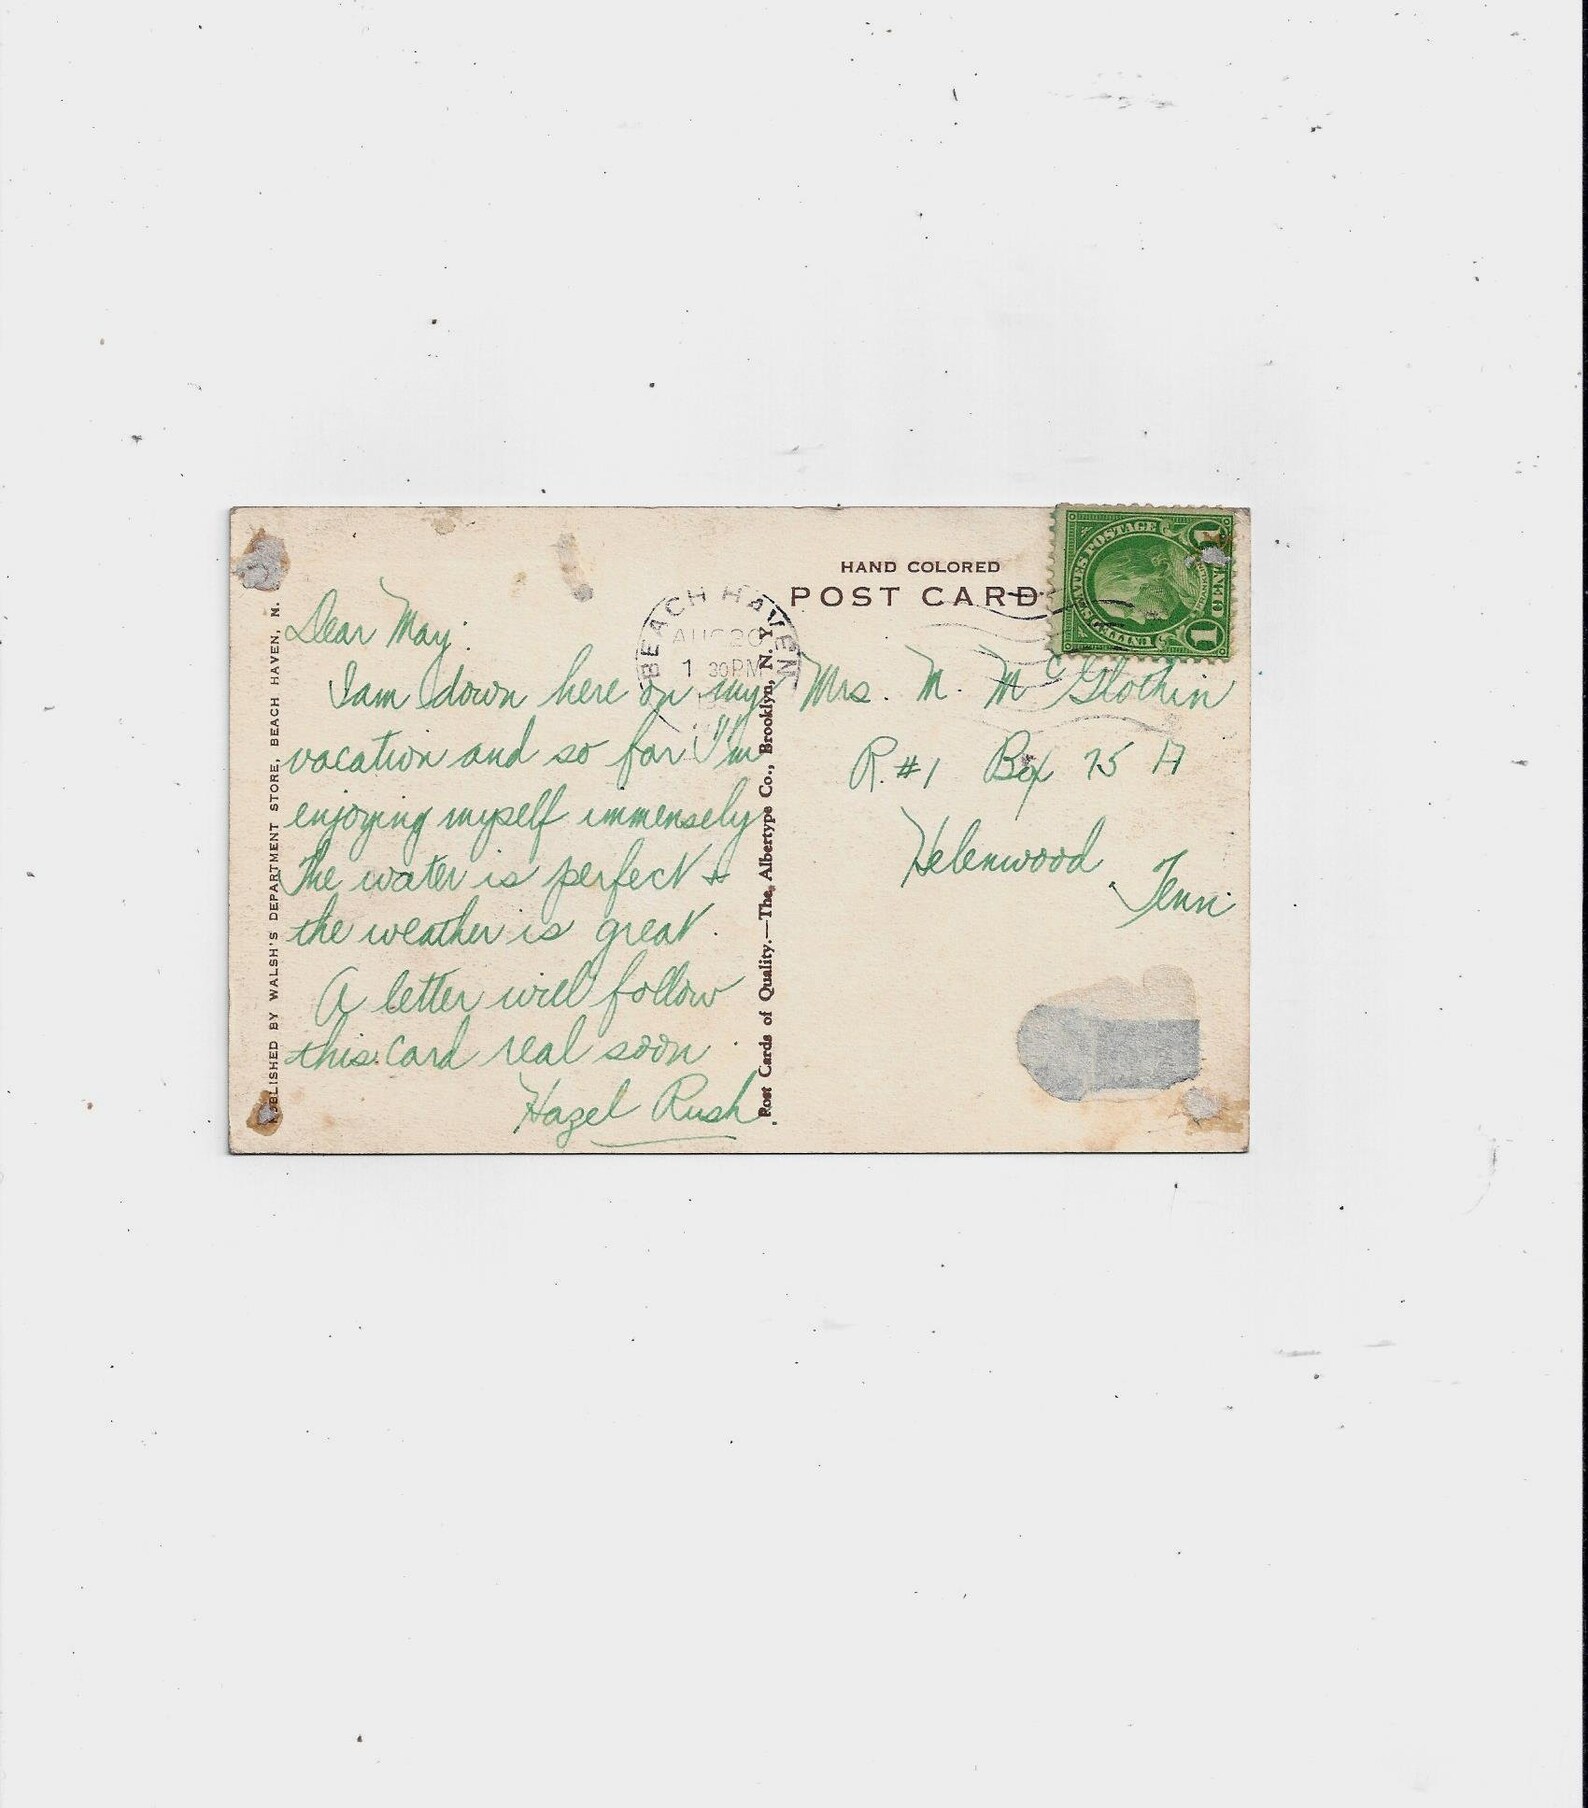 HAND COLORED
POST CARD
BEACH HAVEN
AUG 20
1 30PM
1
Dear May:
I am down here on my
vacation and so far I'm
enjoying myself immensely
The water is perfect &
the weather is great.
A letter will follow
this card real soon
Hazel Rush.
Mrs. M. McGlothin
R. #1 Box 75 A
Helenwood
Tenn.
PUBLISHED BY WALSH'S DEPARTMENT STORE, BEACH HAVEN, N.
Post Cards of Quality.—The Albertype Co., Brooklyn, N. Y.